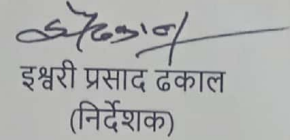 इश्वरी प्रसाद ढकाल
(निर्देशक)